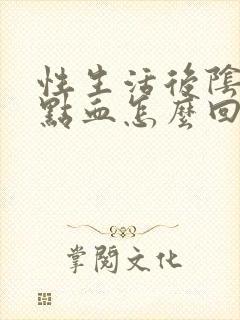 性生活後陰
點血怎麼回
掌閱文化